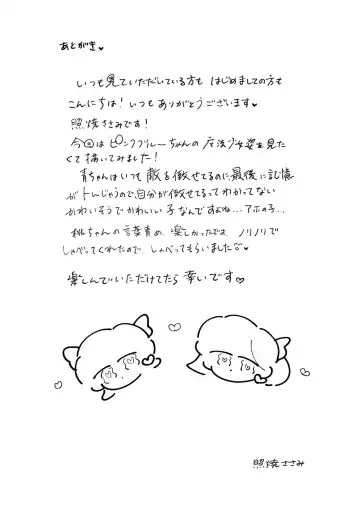 あとがき♥
いつも見ていただいている方も はじめましての方も
こんにちは！いつもありがとうございます♥
照焼ささみです！
今回はピンクブルーちゃんの魔法少女姿を見た
くて描いてみました！
青ちゃんはいつも敵を倒せてるのに最後に記憶
がトんじゃうので、自分が倒せてるってわかってない
かわいそうでかわいい子なんですよね…アホの子…
桃ちゃんの言葉責め、楽しかったです、ノリノリで
しゃべってくれたので、しゃべってもらいました
楽しんでいただけてたら幸いです♥
照焼ささみ